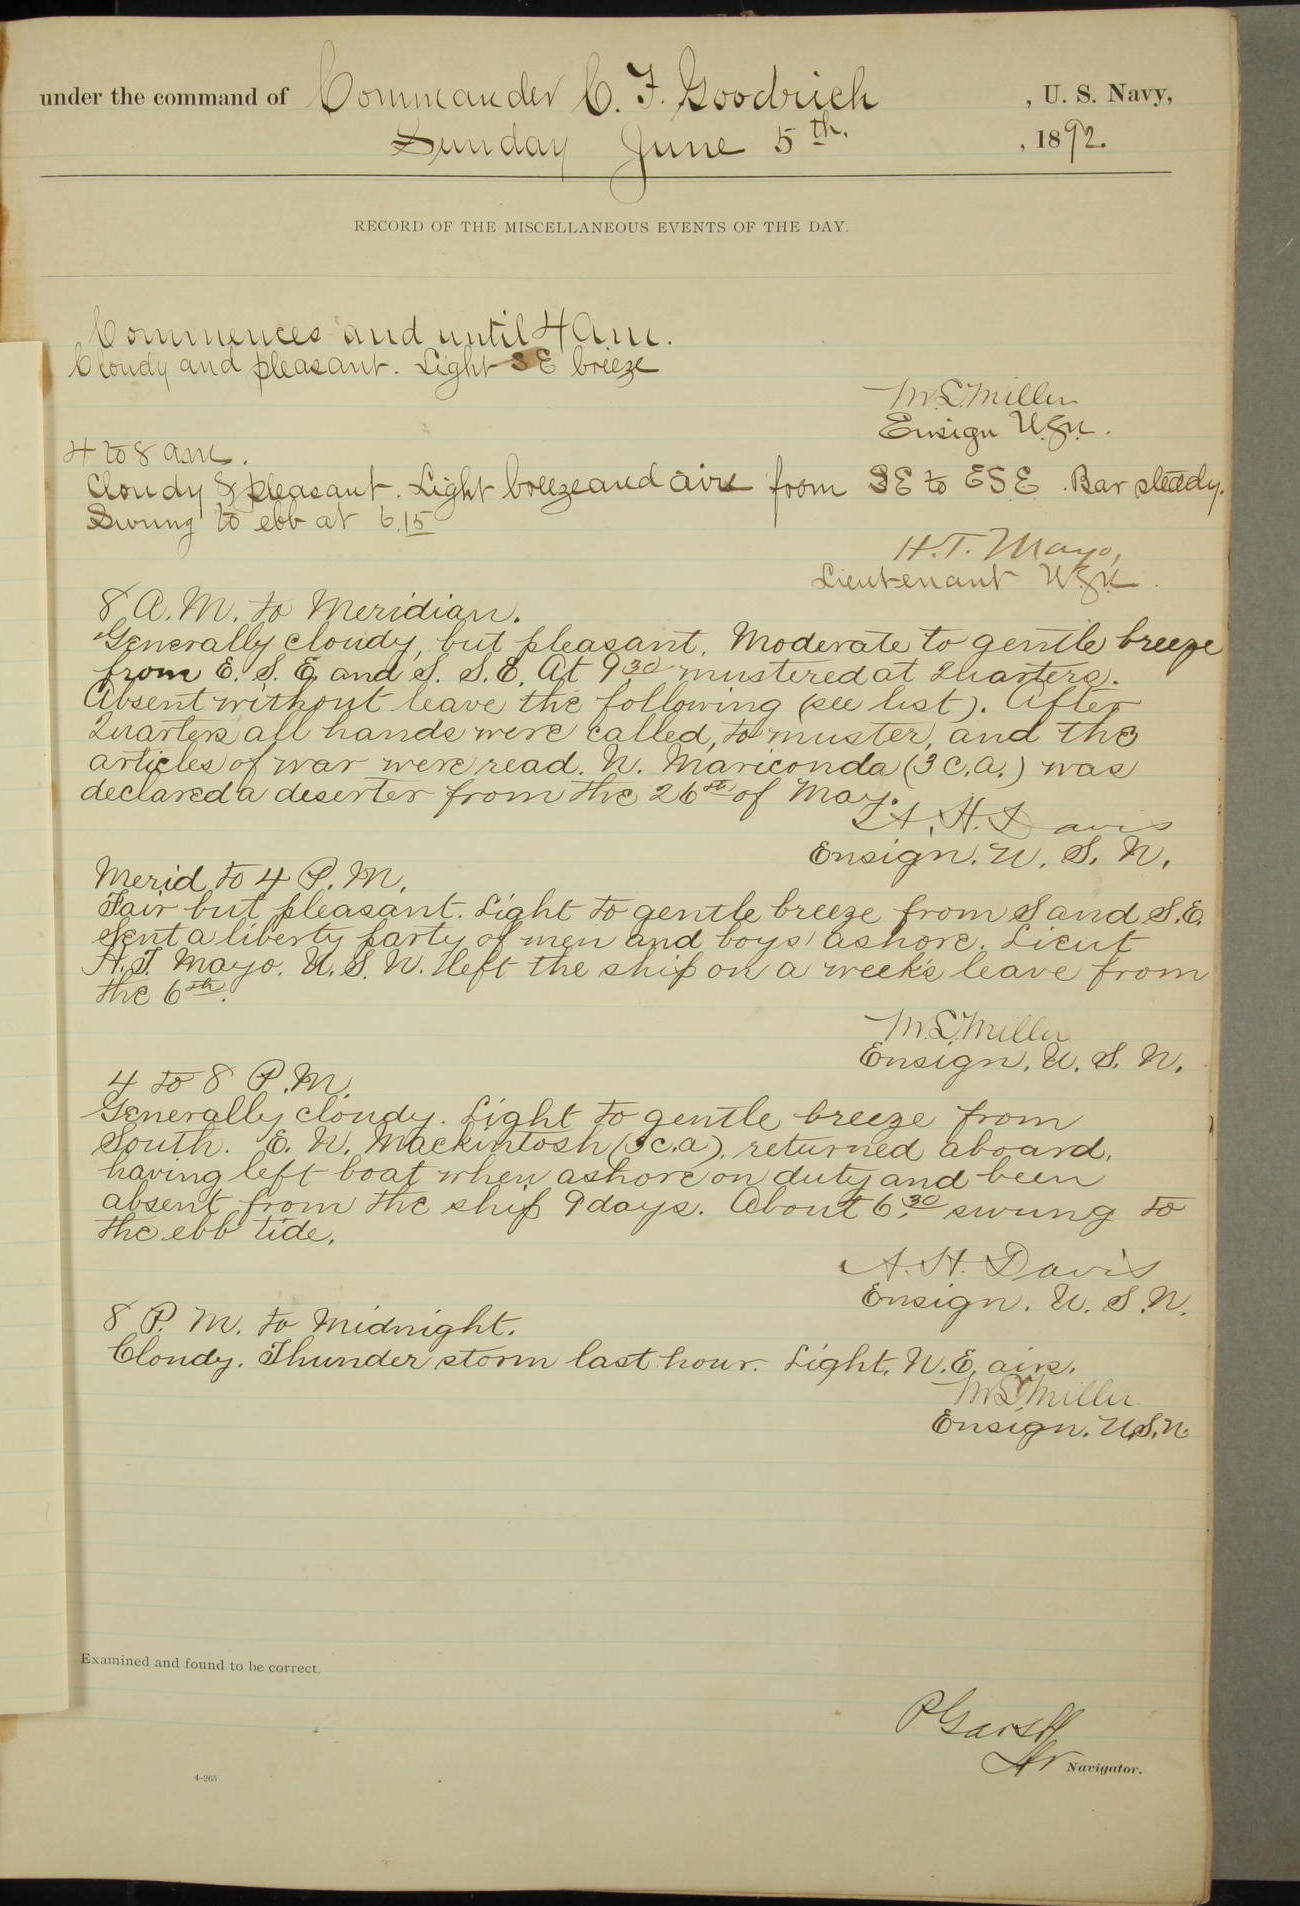 under the command of Commander C. F. Goodrich, U. S. Navy,
Sunday June 5th., 1892.
RECORD OF THE MISCELLANEOUS EVENTS OF THE DAY.
Commences and until 4 am.
Cloudy and pleasant. Light S E breeze
M.L. Miller
Ensign U.S.N.
4 to 8 am.
Cloudy & pleasant. Light breeze and airs from SE to ESE. Bar steady.
Swung to ebb at 6.15
H. T. Mayo,
Lieutenant U.S.N.
8 A.M. to Meridian.
Generally cloudy, but pleasant. Moderate to gentle breeze
from E. S. E. and S. S. E. At 9 30 mustered at Quarters.
Absent without leave the following (see list). After
Quarters all hands were called, to muster, and the
articles of war were read. N. Mariconda (3 C.A.) was
declared a deserter from the 26th of May.
A. H. Davis
Ensign. U. S. N.
Merid to 4 P. M.
Fair but pleasant. Light to gentle breeze from S and S.E.
Sent a liberty party of men and boys ashore. Lieut
H. T. Mayo. U. S. N. left the ship on a week's leave from
the 6th.
M.L. Miller
Ensign. U. S. N.
4 to 8 P. M.
Generally cloudy. Light to gentle breeze from
South. E. N. Mackintosh (3 C.A). returned aboard,
having left boat when ashore on duty and been
absent from the ship 9 days. About 6.30 swung to
the ebb tide.
A. H. Davis
Ensign. U. S. N.
8 P. M. to Midnight.
Cloudy. Thunder storm last hour. Light, N. E. airs.
M.L. Miller
Ensign. U.S.N.
Examined and found to be correct.
Navigator.
4-265